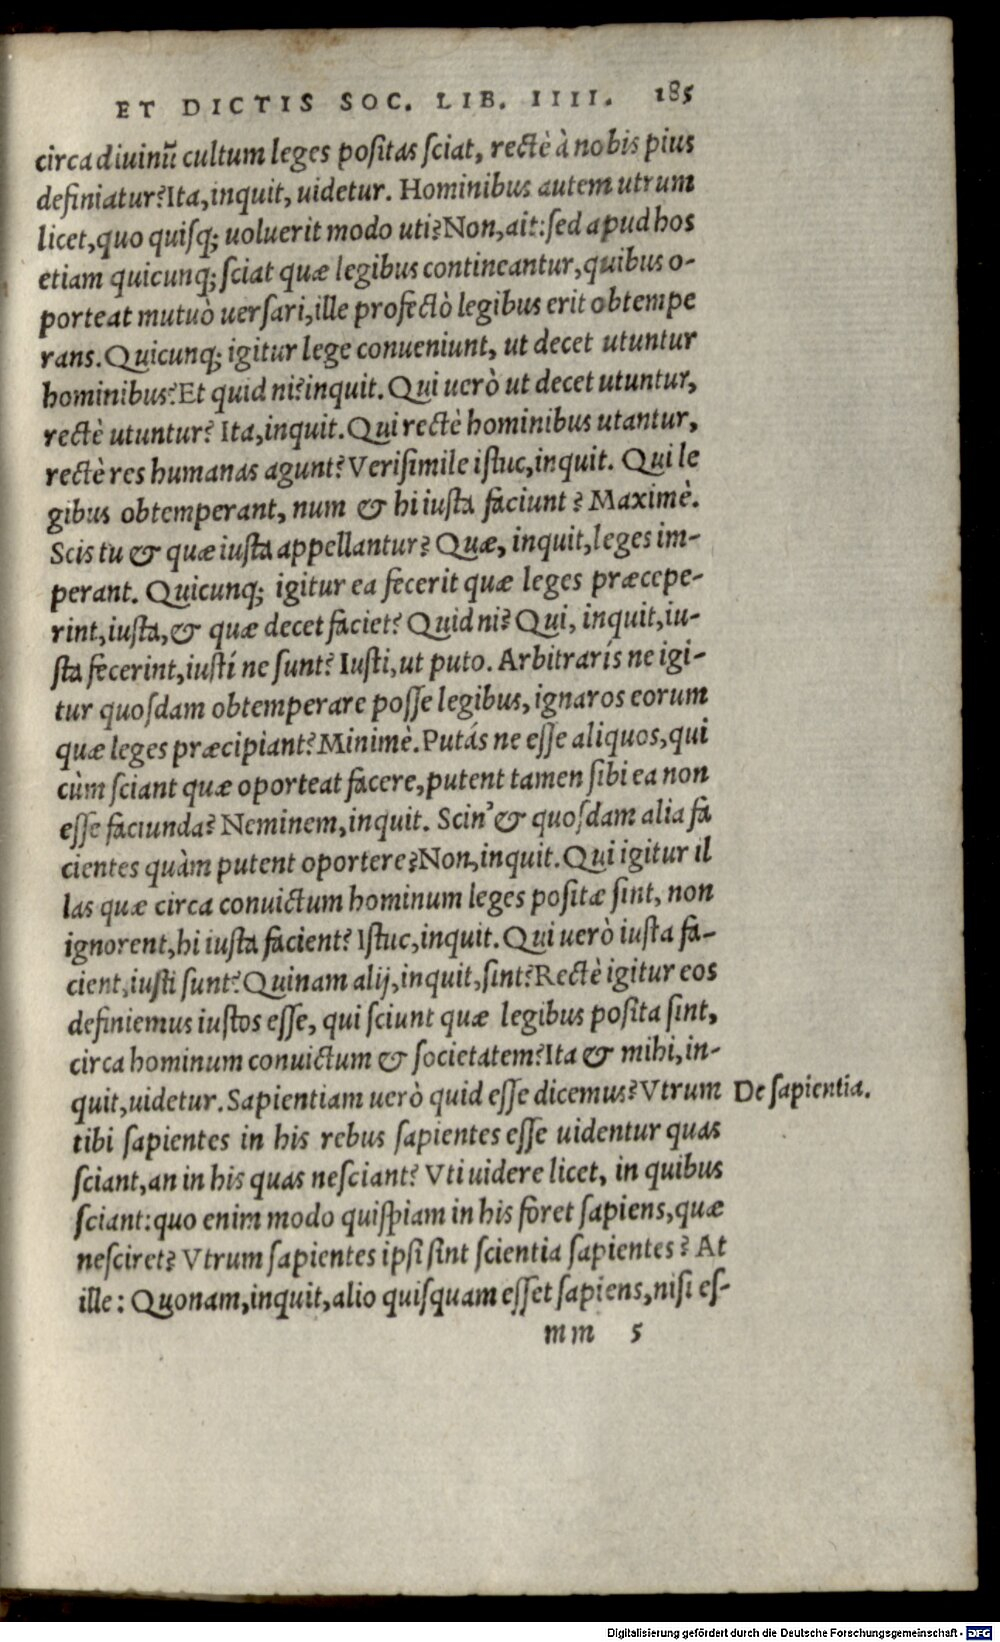 ET DICTIS SOC. LIB. IIII. 185
circa diuinũ cultum leges positas sciat, rectè à nobis pius
definiatur? Ita, inquit, uidetur. Hominibus autem utrum
licet, quo quisq; uoluerit modo uti? Non, ait: sed apud hos
etiam quicunq; sciat quæ legibus contineantur, quibus o-
porteat mutuò uersari, ille profectò legibus erit obtempe
rans. Quicunq; igitur lege conueniunt, ut decet utuntur
hominibus? Et quid ni? inquit. Qui uerò ut decet utuntur,
rectè utuntur? Ita, inquit. Qui rectè hominibus utantur,
rectè res humanas agunt? Verisimile istuc, inquit. Qui le
gibus obtemperant, num & hi iusta faciunt? Maximè.
Scis tu & quæ iusta appellantur? Quæ, inquit, leges im-
perant. Quicunq; igitur ea fecerit quæ leges præcepe-
rint, iusta, & quæ decet faciet? Quid ni? Qui, inquit, iu-
sta fecerint, iustí ne sunt? Iusti, ut puto. Arbitrarís ne igi-
tur quosdam obtemperare posse legibus, ignaros eorum
quæ leges præcipiant? Minimè. Putás ne esse aliquos, qui
cùm sciant quæ oporteat facere, putent tamen sibi ea non
esse faciunda? Neminem, inquit. Scin' & quosdam alia fa
cientes quàm putent oportere? Non, inquit. Qui igitur il
las quæ circa conuictum hominum leges positæ sint, non
ignorent, hi iusta facient? Istuc, inquit. Qui uerò iusta fa-
cient, iusti sunt? Quinam alij, inquit, sint? Rectè igitur eos
definiemus iustos esse, qui sciunt quæ legibus posita sint,
circa hominum conuictum & societatem? Ita & mihi, in-
quit, uidetur. Sapientiam uerò quid esse dicemus? Vtrum De sapientia.
tibi sapientes in his rebus sapientes esse uidentur quas
sciant, an in his quas nesciant? Vti uidere licet, in quibus
sciant: quo enim modo quispiam in his foret sapiens, quæ
nesciret? Vtrum sapientes ipsi sint scientia sapientes? At
ille: Quonam, inquit, alio quisquam esset sapiens, nisi es-
mm 5
Digitalisierung gefördert durch die Deutsche Forschungsgemeinschaft - DFG